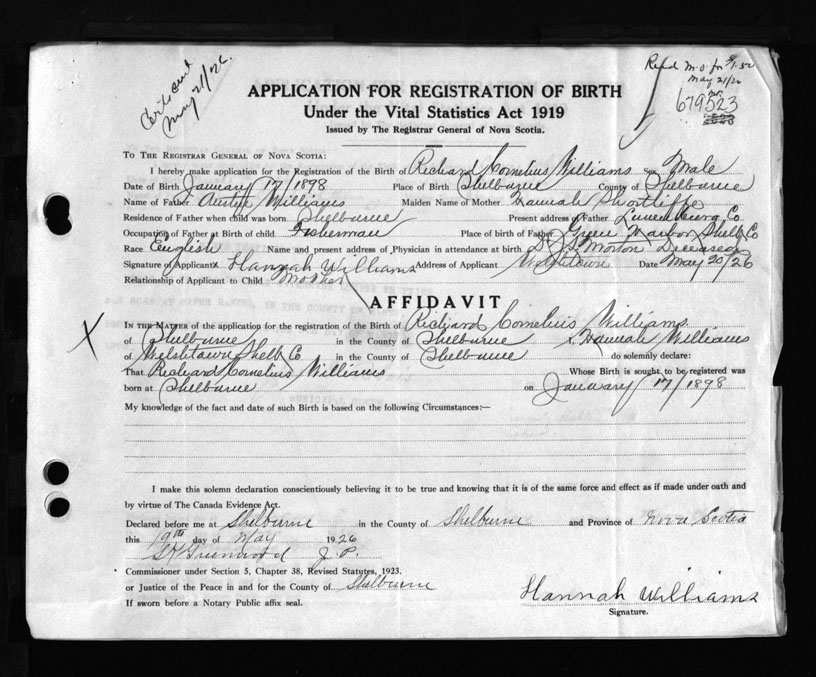 Cert sent
May 21/26.
Recd M.O. for $1.50
May 21/26
679523
APPLICATION FOR REGISTRATION OF BIRTH
Under the Vital Statistics Act 1919
Issued by The Registrar General of Nova Scotia.
TO THE REGISTRAR GENERAL OF NOVA SCOTIA:
I hereby make application for the Registration of the Birth of Richard Cornelius Williams Sex Male
Date of Birth January 17/1898 Place of Birth Shelburne County of Shelburne
Name of Father Austin Williams Maiden Name of Mother Hannah Shortliffe
Residence of Father when child was born Shelburne Present address of Father Lunenburg Co
Occupation of Father at Birth of child Fisherman Place of birth of Father Green Harbor Shelb Co
Race English Name and present address of Physician in attendance at birth Dr Morton Deceased
Signature of Applicant x Hannah Williams Address of Applicant Welshtown Date May 20/26
Relationship of Applicant to Child Mother
AFFIDAVIT
X
IN THE MATTER of the application for the registration of the Birth of Richard Cornelius Williams
of Shelburne in the County of Shelburne x Hannah Williams
of Welshtown Shelb Co in the County of Shelburne do solemnly declare:
That Richard Cornelius Williams Whose Birth is sought to be registered was
born at Shelburne on January 17/1898
My knowledge of the fact and date of such Birth is based on the following Circumstances:—
I make this solemn declaration conscientiously believing it to be true and knowing that it is of the same force and effect as if made under oath and
by virtue of The Canada Evidence Act.
Declared before me at Shelburne in the County of Shelburne and Province of Nova Scotia
this 19th day of May 1926
Greenwood J.P.
Commissioner under Section 5, Chapter 38, Revised Statutes, 1923.
or Justice of the Peace in and for the County of Shelburne
If sworn before a Notary Public affix seal.
Hannah Williams
Signature.